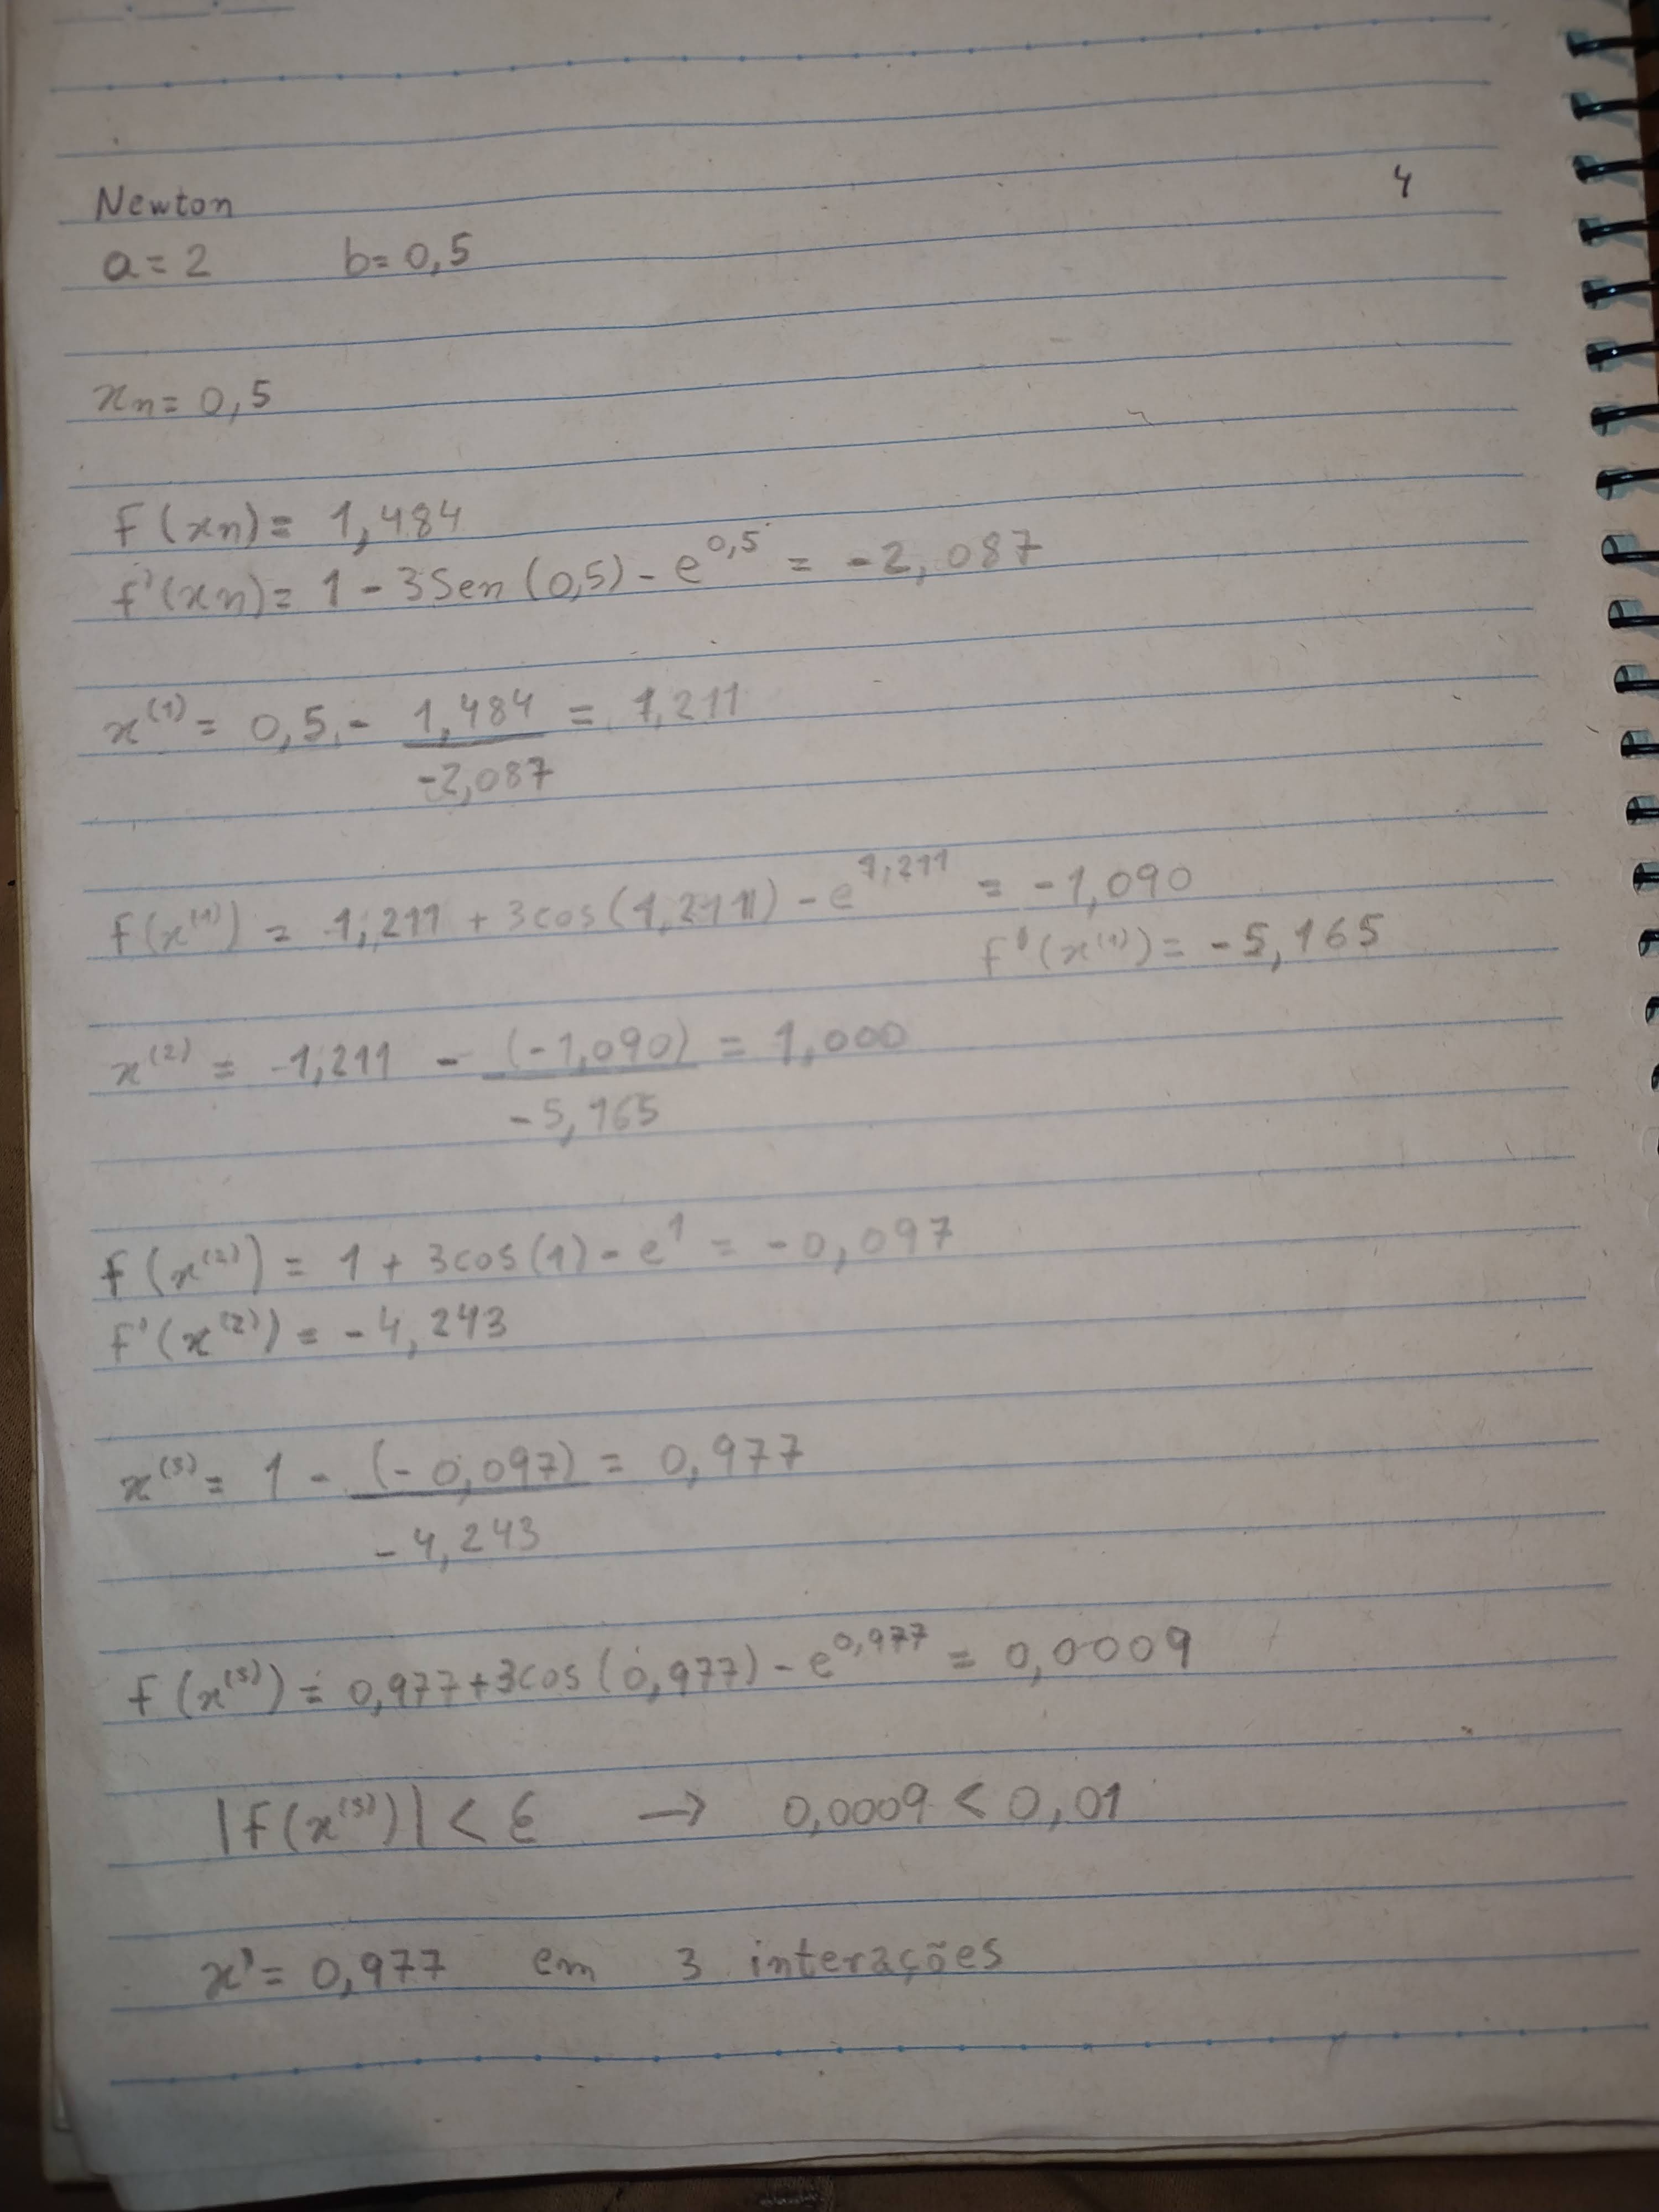 4
Newton
a = 2 b = 0,5
xn = 0,5
f(xn) = 1,484
f'(xn) = 1 - 3Sen(0,5) - e^0,5 = -2,087
x^(1) = 0,5 - 1,484 = 1,211
-2,087
f(x^(1)) = 1,211 + 3cos(1,211) - e^1,211 = -1,090
f'(x^(1)) = -5,165
x^(2) = 1,211 - (-1,090) = 1,000
-5,165
f(x^(2)) = 1 + 3cos(1) - e^1 = -0,097
f'(x^(2)) = -4,243
x^(3) = 1 - (-0,097) = 0,977
-4,243
f(x^(3)) = 0,977 + 3cos(0,977) - e^0,977 = 0,0009
|f(x^(3))| < ε → 0,0009 < 0,01
x' = 0,977 em 3 interações